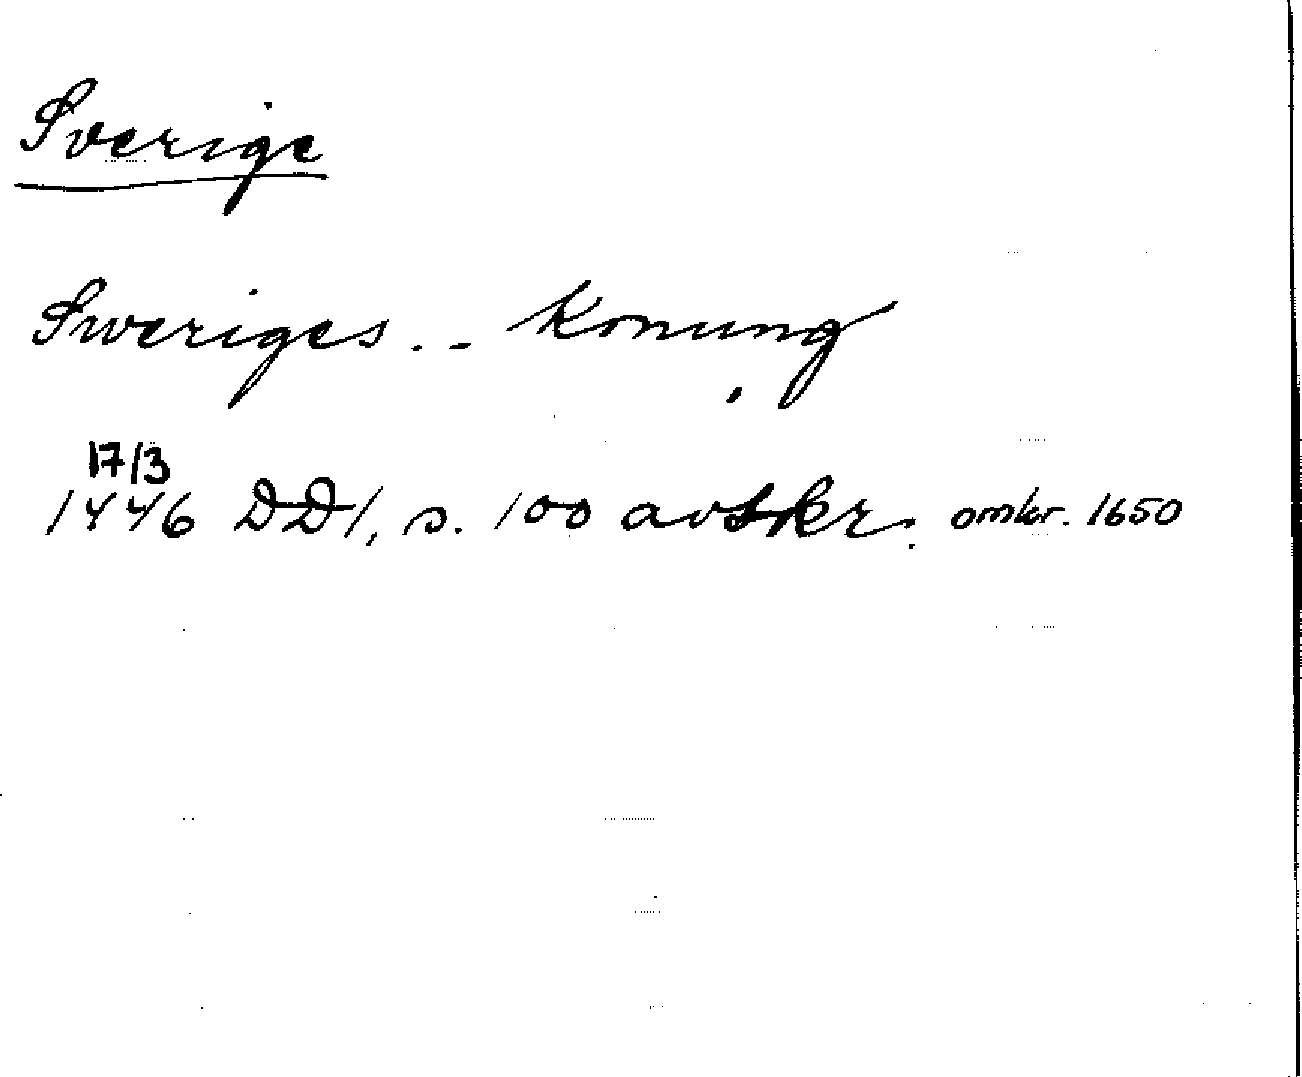 Sverige
Sweriges .. Konung
17/3
1446 DD1, s. 100 avskr. omkr. 1650